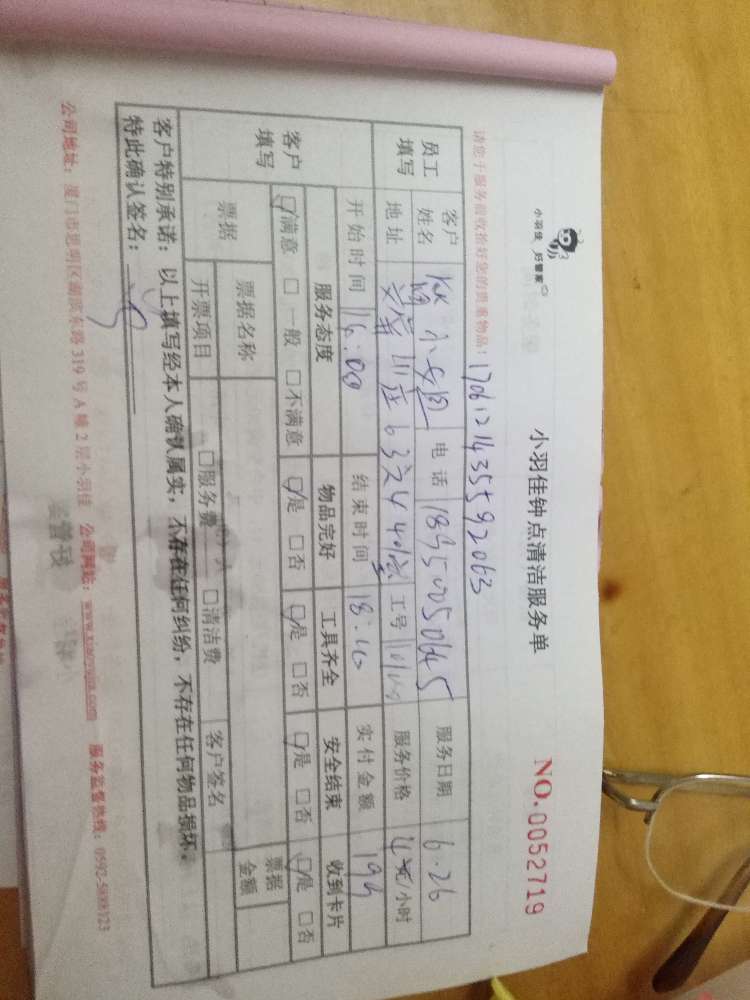 小羽佳 好管家
小羽佳钟点清洁服务单
NO.0052719
请您于服务前收拾好您的贵重物品！
1706121435592063
员工填写
客户姓名 小 电话 18950050645 服务日期 6.26
地址 63 工号 服务价格 元/小时
客户填写
开始时间 16:00 结束时间 18: 实付金额
服务态度 物品完好 工具齐全 安全结束 收到卡片
☑满意 □一般 □不满意 ☑是 □否 ☑是 □否 ☑是 □否 ☑是 □否
票据 票据名称 票据金额
开票项目 □服务费 □清洁费 客户签名
客户特别承诺：以上填写经本人确认属实，不存在任何纠纷，不存在任何物品损坏。
特此确认签名：
公司地址：厦门市思明区湖滨东路319号A幢2层小羽佳 公司网站：www.xiaoyujia.com 服务监督热线：0592-